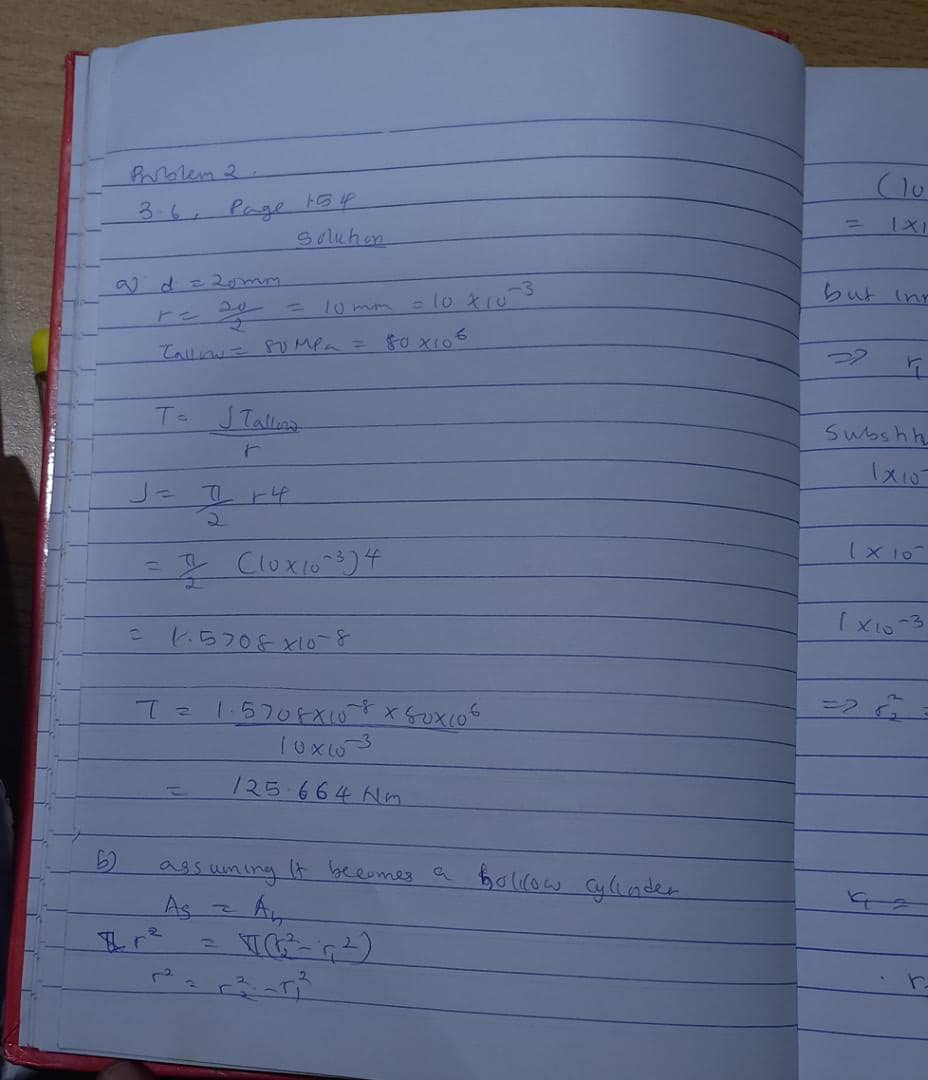 Problem 2.
3.6, Page 154
Solution
a) d = 20mm
r = 20/2 = 10mm = 10 x 10^-3
τallow = 80MPa = 80 x 10^6
T = Jτallow/r
J = π/2 r4
= π/2 (10x10^-3)4
= 1.5708 x10^-8
T = 1.5708x10^-8 x 80x10^6 / 10x10^-3
= 125.664 Nm
b) assuming It becomes a hollow cylinder
As = Ah
π r² = π(r₂² - r₁²)
r² = r₂² - r₁²
(10
= 1x1
but inn
=> r₁
Substit
1x10-
1 x 10-
1 x10-3
=> r₂² =
r₁ =
r